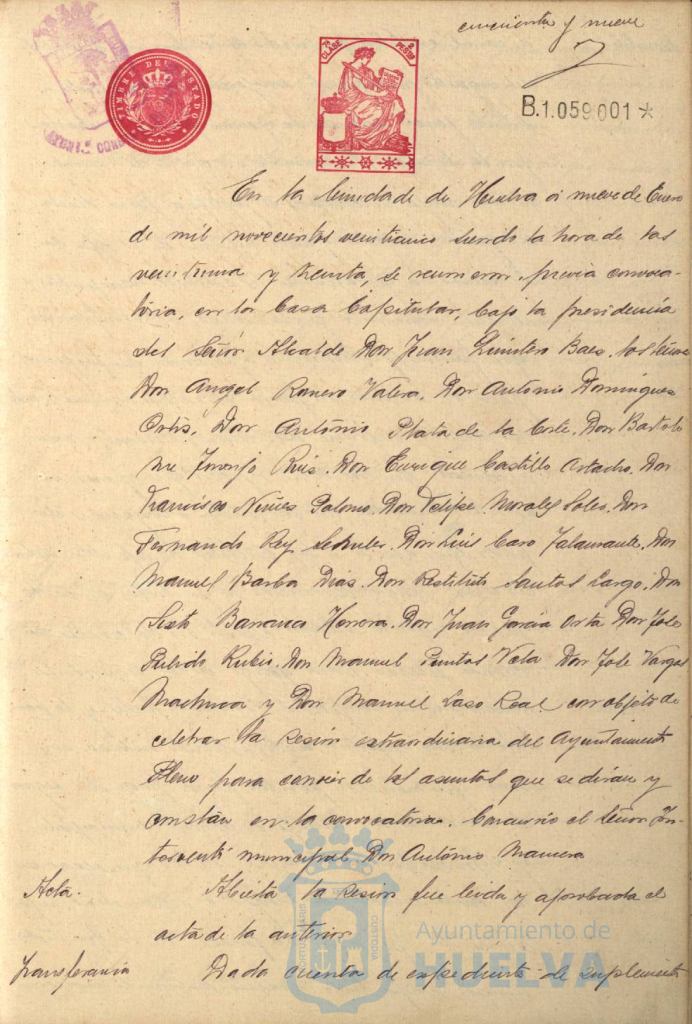 cincuenta y nueve
TIMBRE DEL ESTADO
7ª CLASE 2 PESETAS
B.1.059.001 *
En la Ciudad de Huelva a nueve de Enero
de mil novecientos veinticinco siendo la hora de las
veintiuna y treinta, se reunieron previa convoca-
toria, en la Casa Capitular, bajo la presidencia
del Señor Alcalde Don Juan Quintero Baez, los señores
Don Angel Ranero Valera, Don António Dominguez
Ortiz, Don António Plata de la Corte, Don Bartolo
me Ruiz, Don Enrique Castillo Don
Francisco Nuñez Palomo, Don Felipe Morales Don
Fernando Rey Don Luis Caro Don
Manuel Barba Dias, Don Restituto Santos Don
Sixto Barranco Herrera, Don Juan Garcia Orta Don José
Pulido Rubio, Don Manuel Puntas Vela Don José Vargas
Machuca y Don Manuel Laso Real con objeto de
celebrar la sesión extraordinaria del Ayuntamiento
Pleno para conocer de los asuntos que se dirán y
constan en la convocatoria. Concurrió el Señor In-
terventor municipal Don António
Acta. Abierta la sesión fue leida y aprobada el
acta de la anterior
Transferencia Dada cuenta de expediente de suplemento
Ayuntamiento de
HUELVA